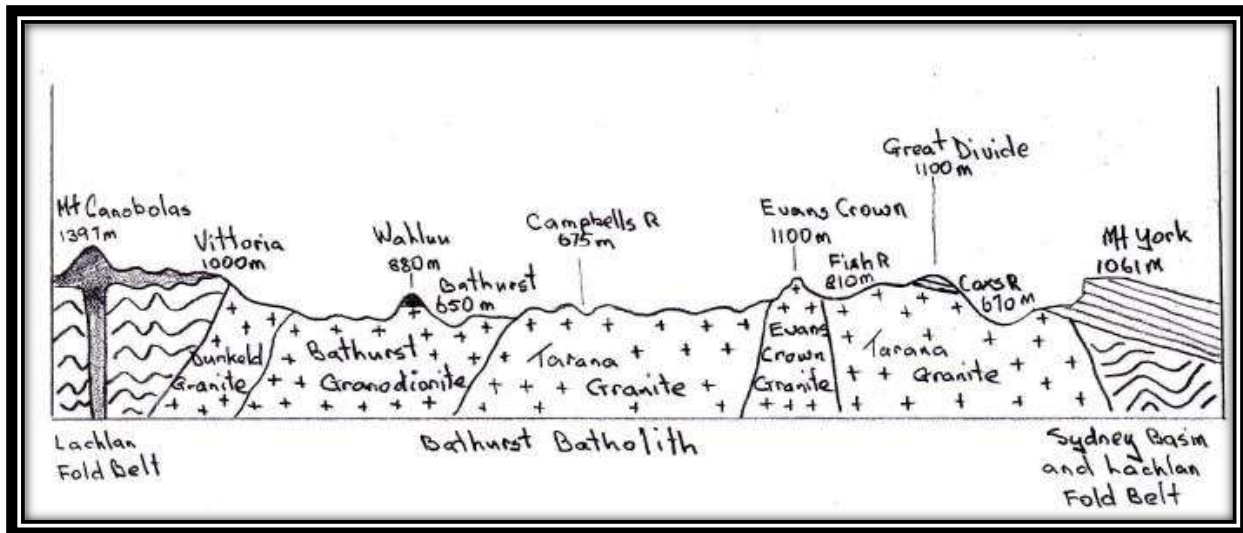 Great Divide
1100m
Mt Canobolas
1397m
Vittoria
1000m
Wahluu
880m
Bathurst
650m
Campbells R
675m
Evans Crown
1100m
Fish R
810m
Coxs R
670m
Mt York
1061m
Dunkeld
Granite
Bathurst
Granodionite
Tarana
Granite
Evans
Crown
Granite
Tarana
Granite
Lachlan
Fold Belt
Bathurst Batholith
Sydney Basin
and Lachlan
Fold Belt